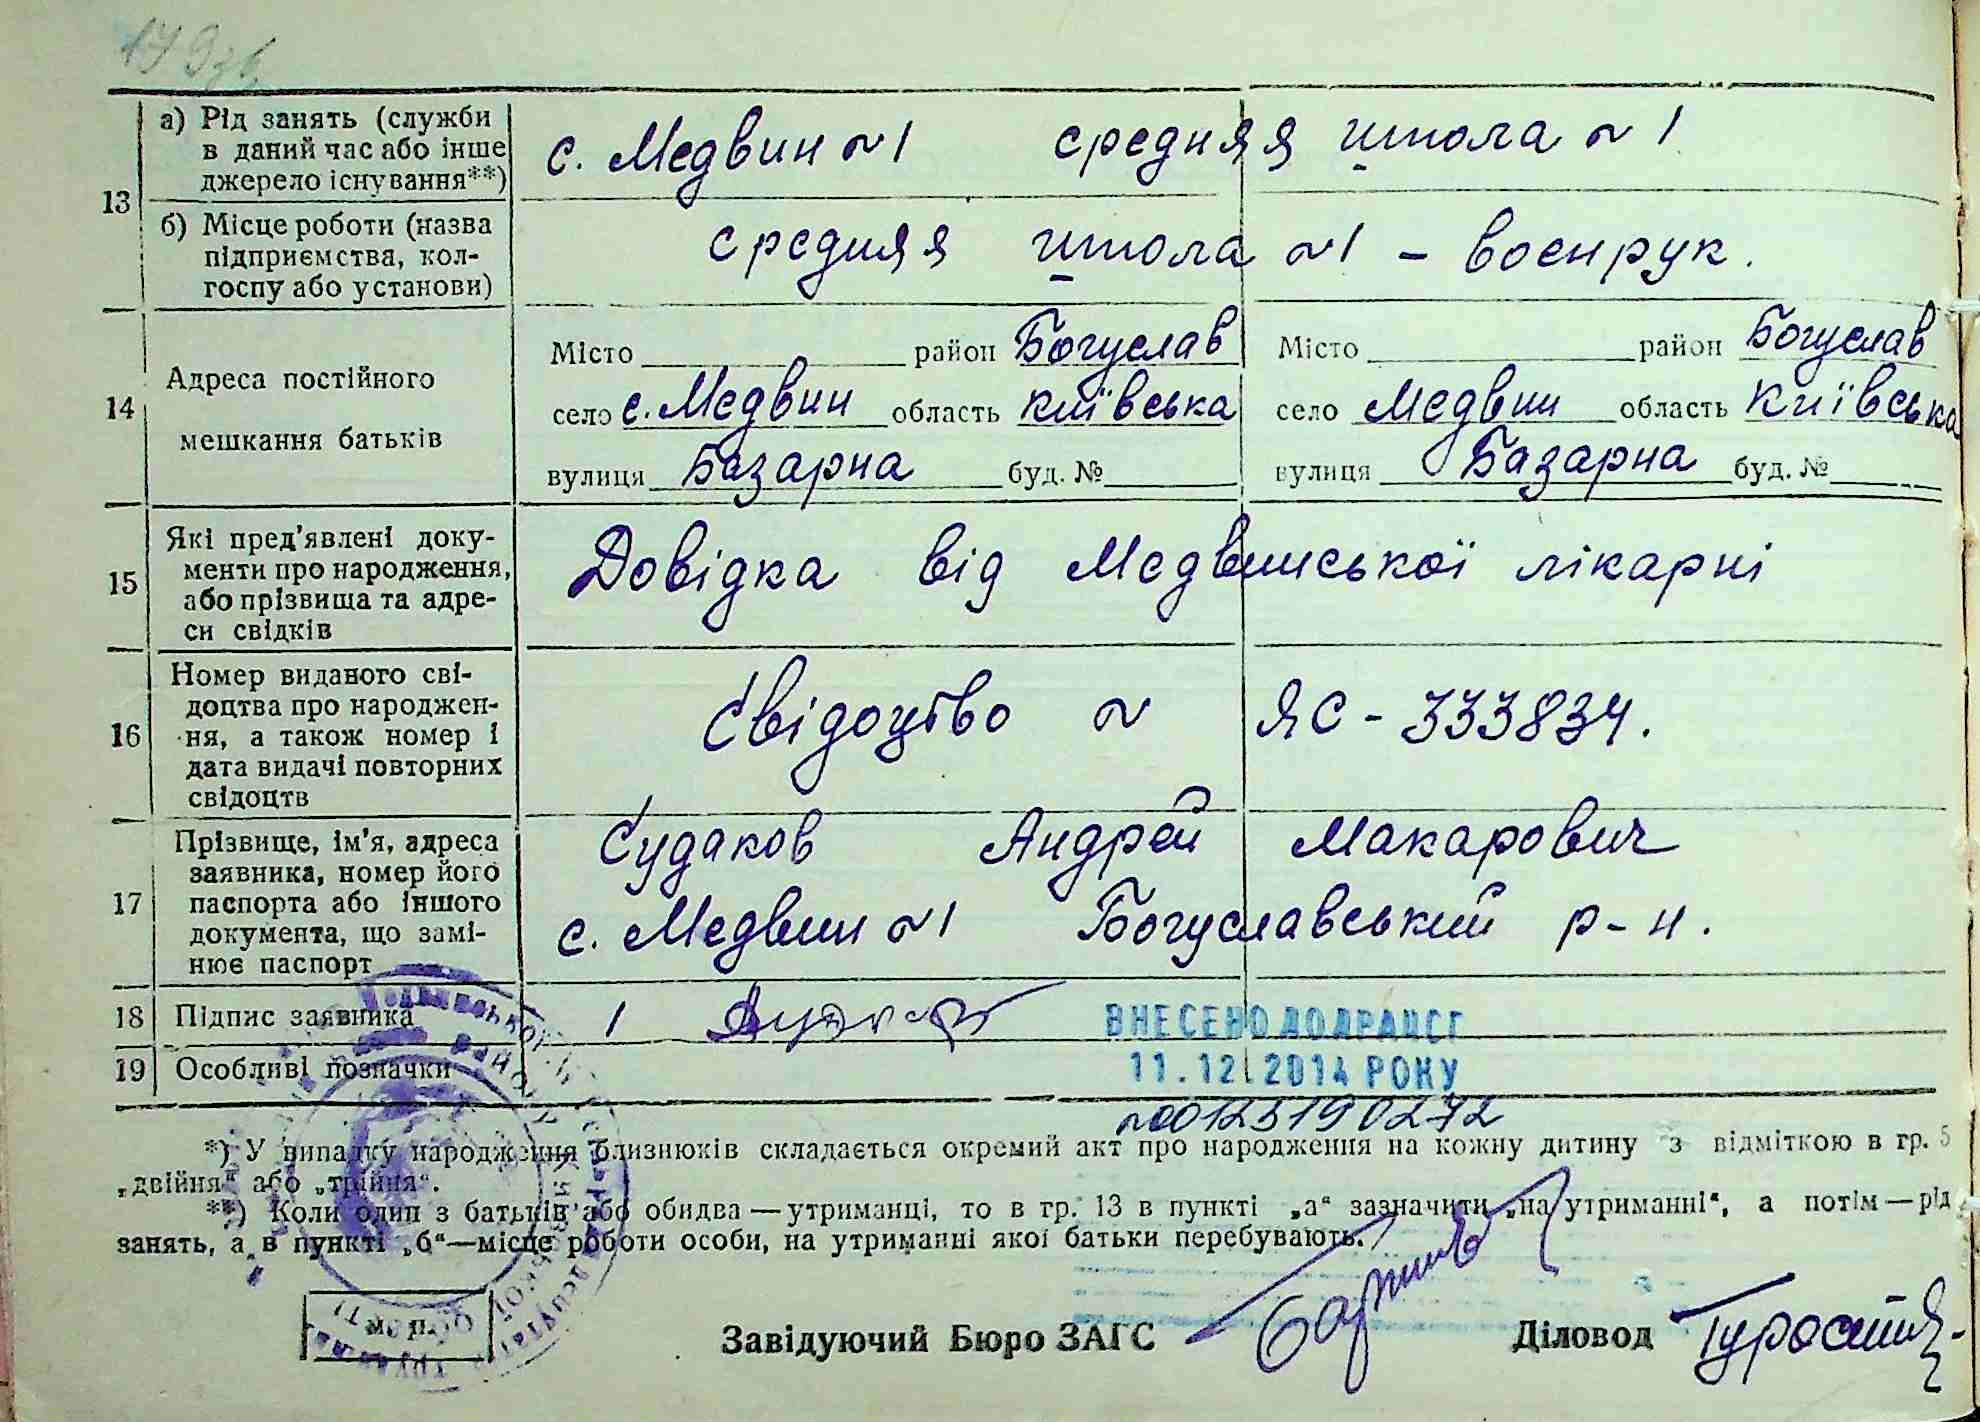 179зв
а) Рід занять (служби в даний час або інше джерело існування**)
с. Медвин №1 средняя школа №1
13
б) Місце роботи (назва підприємства, колгоспу або установи)
средняя школа №1 - воєнрук.
14 Адреса постійного мешкання батьків
Місто район Богуслав Місто район Богуслав
село с. Медвин область Київська село Медвин область Київська
вулиця Базарна буд. № вулиця Базарна буд. №
15 Які пред'явлені документи про народження, або прізвища та адреси свідків
Довідка від Медвинської лікарні
16 Номер виданого свідоцтва про народження, а також номер і дата видачі повторних свідоцтв
Свідоцтво № ЯС-333834.
17 Прізвище, ім'я, адреса заявника, номер його паспорта або іншого документа, що замінює паспорт
Судаков Андрей Макарович
с. Медвин №1 Богуславський р-н.
18 Підпис заявника
ВНЕСЕНО ДО ДРАЦСГ
19 Особливі позначки
11.12.2014 РОКУ
№00125190272
*) У випадку народження близнюків складається окремий акт про народження на кожну дитину з відміткою в гр. 5
„двійня“ або „трійня“.
**) Коли один з батьків або обидва — утриманці, то в гр. 13 в пункті „а“ зазначити „на утриманні“, а потім — рід
занять, а в пункті „б“—місце роботи особи, на утриманні якої батьки перебувають.
м. п.
Завідуючий Бюро ЗАГС
Діловод